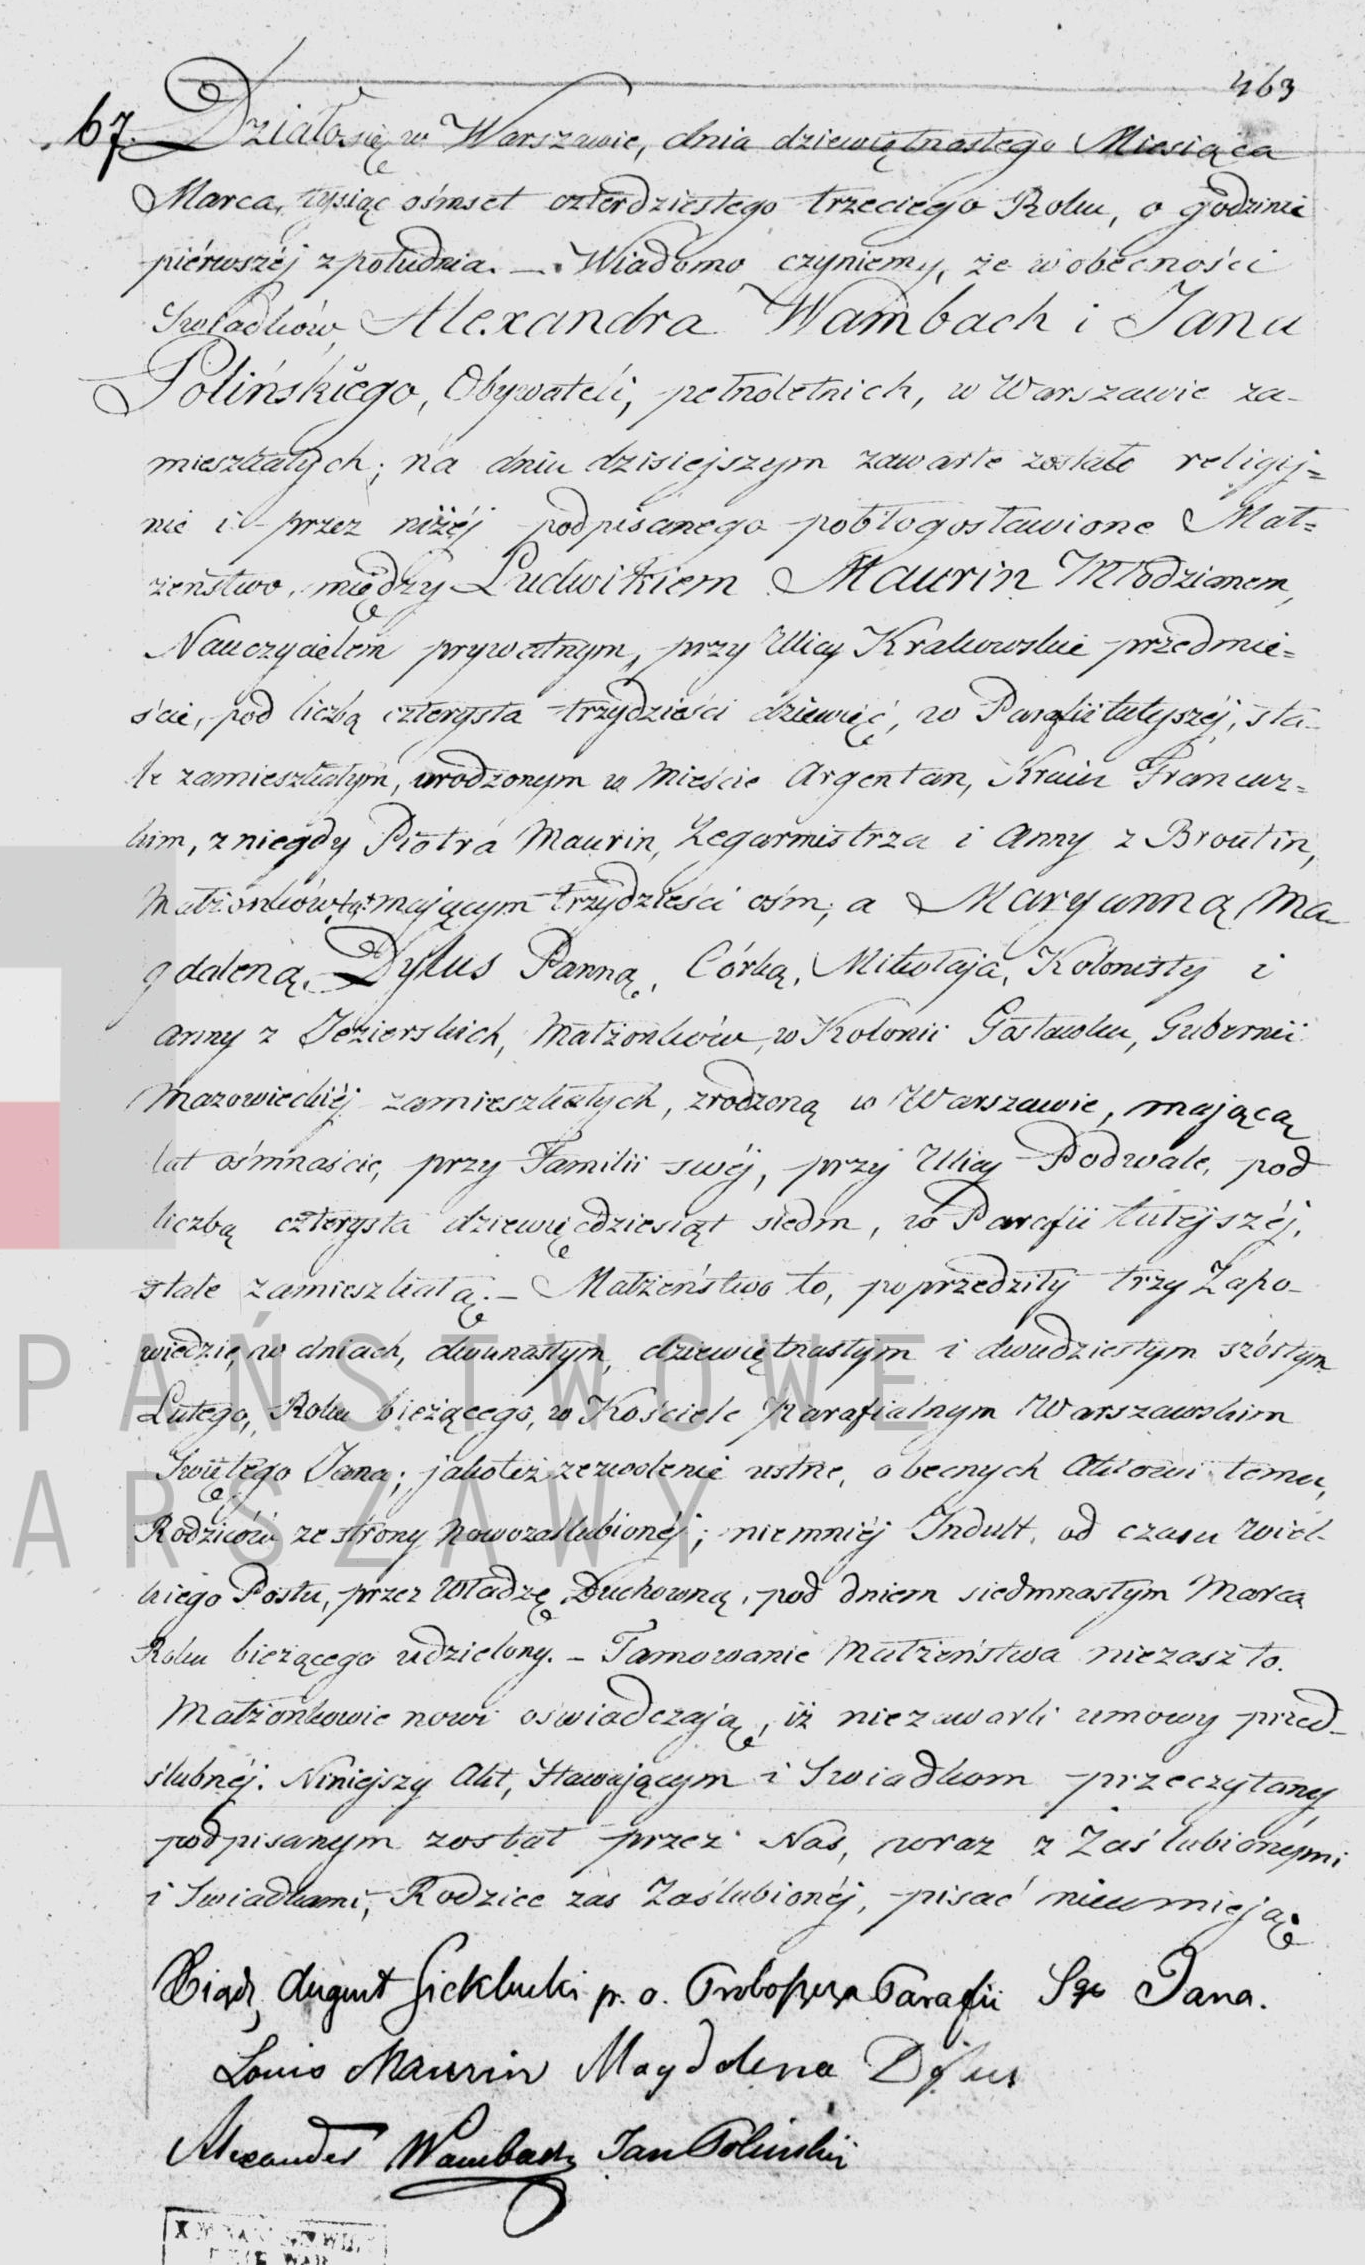 463
67. Działo się w Warszawie, dnia dziewiętnastego Miesiąca
Marca, tysiąc ośmset czterdziestego trzeciego Roku, o godzinie
piérwszéj z południa. — Wiadomo czyniemy, że w obecności
Swiadków, Alexandra Wambach i Jana
Polińskiego, Obywateli, pełnoletnich, w Warszawie za-
mieszkałych; na dniu dzisiejszym zawarte zostało religij=
nie i przez niżéj podpisanego pobłogosławione Mał=
żeństwo, między Ludwikiem Maurin Młodzianem,
Nauczycielem prywatnym, przy Ulicy Krakowskie przedmie=
ście, pod liczbą czterysta trzydzieści dziewięć, w Parafii tutejszéj, sta-
le zamieszkałym, urodzonym w Mieście Argentan, Kraiu Francuz=
kim, z niegdy Piotra Maurin, Zegarmistrza i Anny z Broutin,
Małżonków, lat mającym trzydzieści ośm; a Maryanną Ma-
gdaleną, Dylus Panną, Córką, Mikołaja, Kolonisty i
Anny z Jezierskich, Małżonków, w Kolonii Gosławku, Gubernii
Mazowieckiéj zamieszkałych, zrodzoną w Warszawie, mającą
lat ośmnaście, przy Familii swéj, przy Ulicy Podwale, pod
liczbą czterysta dziewięćdziesiąt siedm, w Parafii tutejszéj,
stale zamieszkałą. — Małżeństwo to, poprzedziły trzy Zapo-
wiedzie, w dniach, dwunastym, dziewiętnastym i dwudziestym szóstym
Lutego, Roku bieżącego, w Kościele Parafialnym Warszawskim
Swiętego Jana; jakoteż zezwolenie ustne, obecnych Aktowi temu,
Rodziców ze strony Nowozaślubionéj; niemniéj Indult, od czasu Wiel-
kiego Postu, przez Władzę Duchowną, pod dniem siedmnastym Marca
Roku bieżącego udzielony. — Tamowanie Małżeństwa niezaszło.
Małżonkowie nowi oświadczają, iż niezawarli umowy przed-
ślubnéj. Niniejszy Akt, Stawającym i Swiadkom przeczytany
podpisanym został przez Nas, wraz z Zaślubionémi
i Swiadkami, Rodzice zaś Zaślubionéj, pisać nieumieją
Xiądz August p. o. Proboszcza Parafii Sgo Jana.
Louis Maurin Magdalena Dylus
Alexander Wambach Jan Polinski
PAŃSTWOWE
ARSZAWY